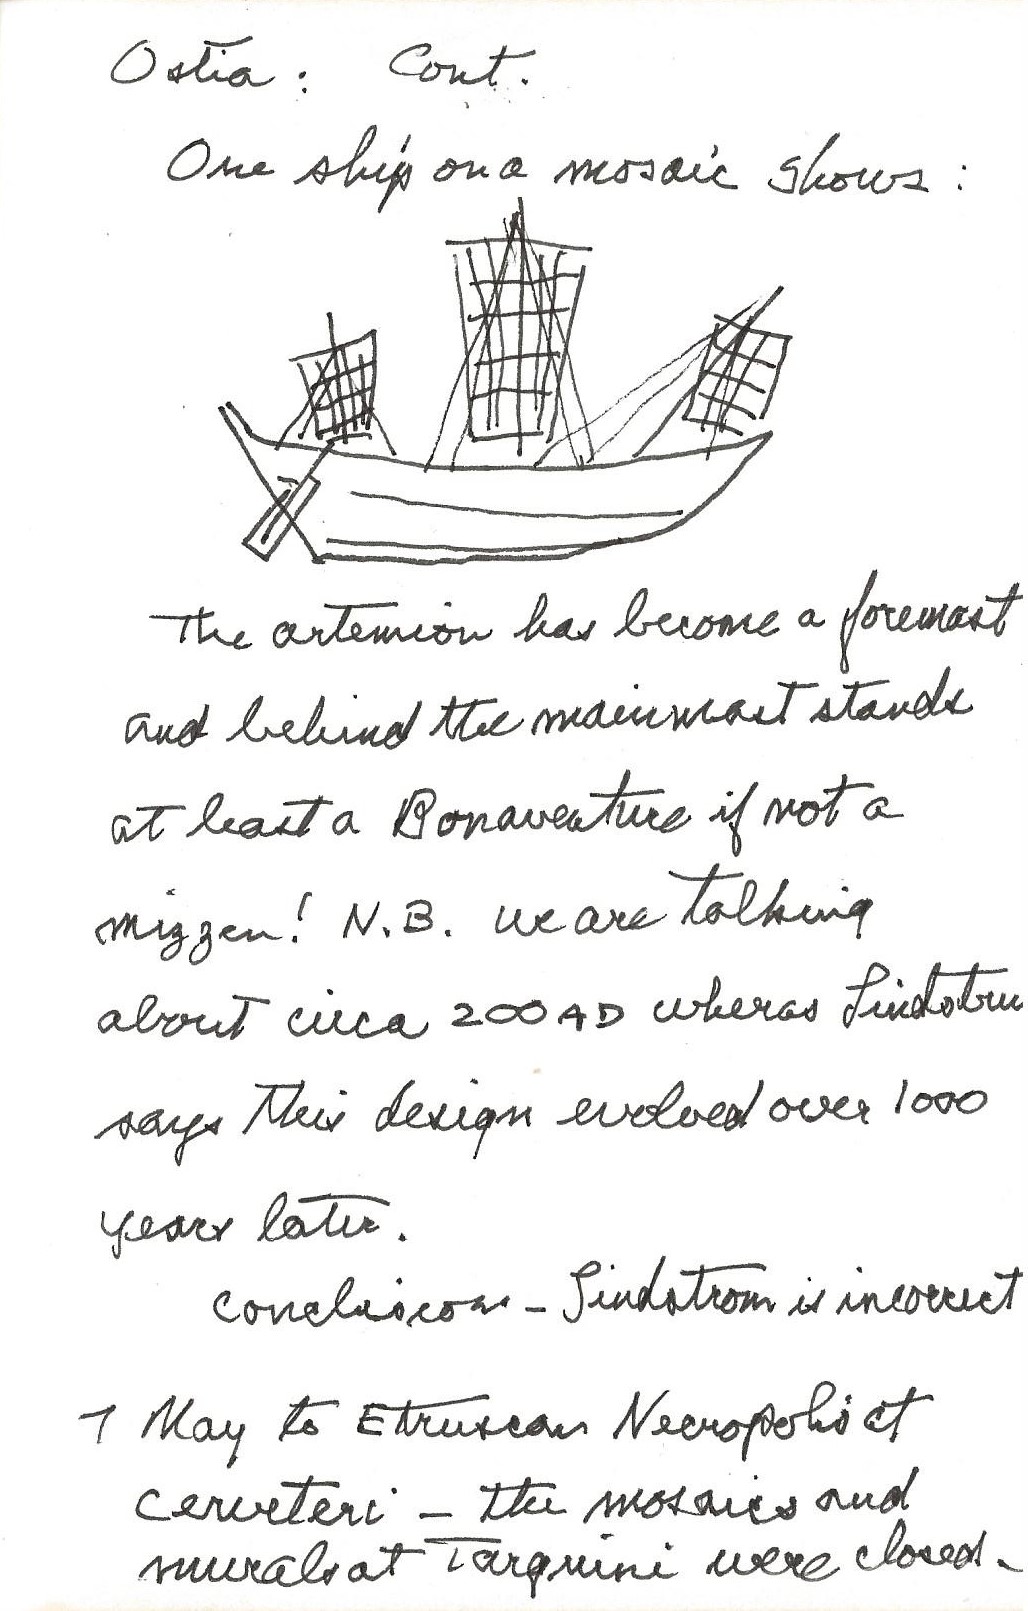 Ostia: Cont.
One ship on a mosaic shows:
The artemion has become a foremast
and behind the mainmast stands
at least a Bonaventure if not a
mizzen! N.B. we are talking
about circa 200 AD wheras Lindstrom
says this design evolved over 1000
years later.
conclusion - Lindstrom is incorrect
7 May to Etruscan Necropolis at
cerveteri - the mosaics and
murals at Tarquini were closed.